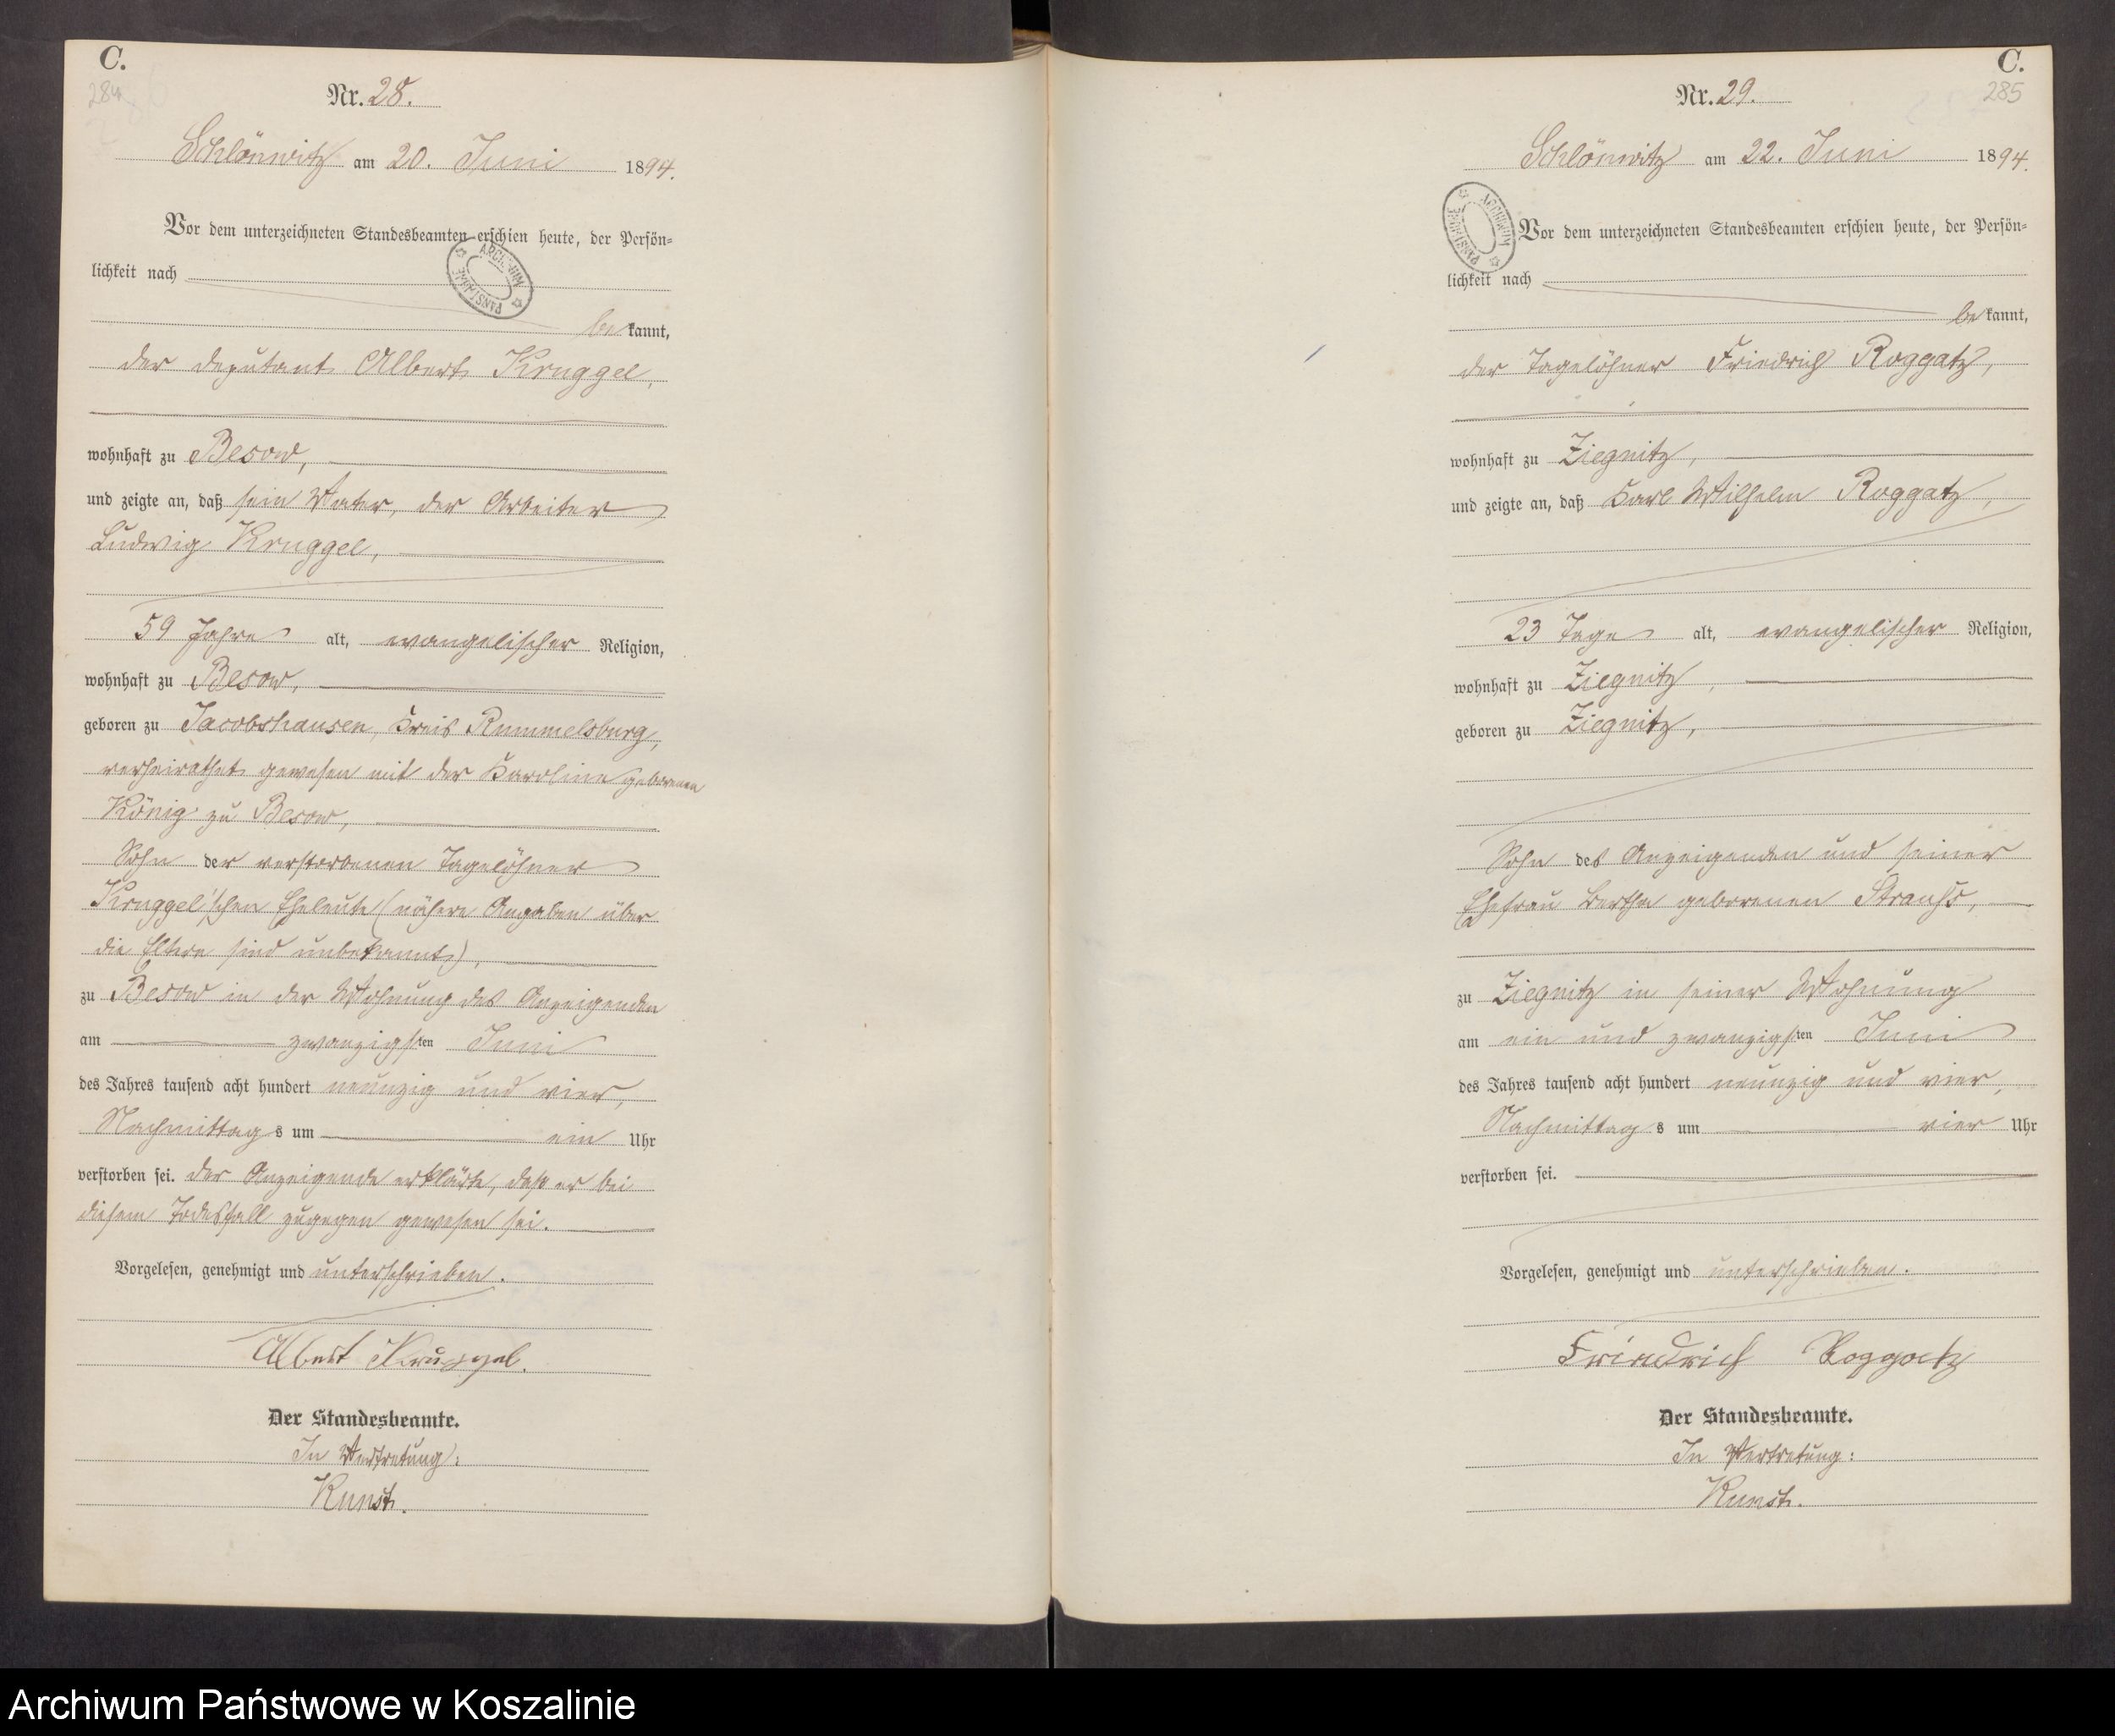 C.
284
Nr. 28.
Schlönwitz am 20. Juni 1894.
Vor dem unterzeichneten Standesbeamten erschien heute, der Persön=
lichkeit nach
be kannt,
der Deputant Albert Kruggel,
wohnhaft zu Besow,
und zeigte an, daß sein Vater, der Arbeiter
Ludwig Kruggel,
59 Jahre alt, evangelischer Religion,
wohnhaft zu Besow,
geboren zu Jacobshausen, Kreis Rummelsburg,
verheirathet gewesen mit der Karoline geborenen
König zu Besow,
Sohn der verstorbenen Tagelöhner
Kruggel'schen Eheleute (nähere Angaben über
die Eltern sind unbekannt),
zu Besow in der Wohnung des Anzeigenden
am zwanzigsten Juni
des Jahres tausend acht hundert neunzig und vier,
Nachmittag s um ein Uhr
verstorben sei. Der Anzeigende erklärte, daß er bei
diesem Todesfall zugegen gewesen sei.
Vorgelesen, genehmigt und unterschrieben.
Albert Kruggel.
Der Standesbeamte.
In Vertretung:
Kunst.
ARCHIWUM PAŃSTWOWE
C.
285
Nr. 29.
Schlönwitz am 22. Juni 1894.
Vor dem unterzeichneten Standesbeamten erschien heute, der Persön=
lichkeit nach
be kannt,
der Tagelöhner Friedrich Roggatz,
wohnhaft zu Ziegnitz,
und zeigte an, daß Karl Wilhelm Roggatz,
23 Tage alt, evangelischer Religion,
wohnhaft zu Ziegnitz,
geboren zu Ziegnitz,
Sohn des Anzeigenden und seiner
Ehefrau Bertha geborenen Strauß,
zu Ziegnitz in seiner Wohnung
am ein und zwanzigsten Juni
des Jahres tausend acht hundert neunzig und vier,
Nachmittag s um vier Uhr
verstorben sei.
Vorgelesen, genehmigt und unterschrieben.
Friedrich Roggatz
Der Standesbeamte.
In Vertretung:
Kunst.
ARCHIWUM PAŃSTWOWE
Archiwum Państwowe w Koszalinie